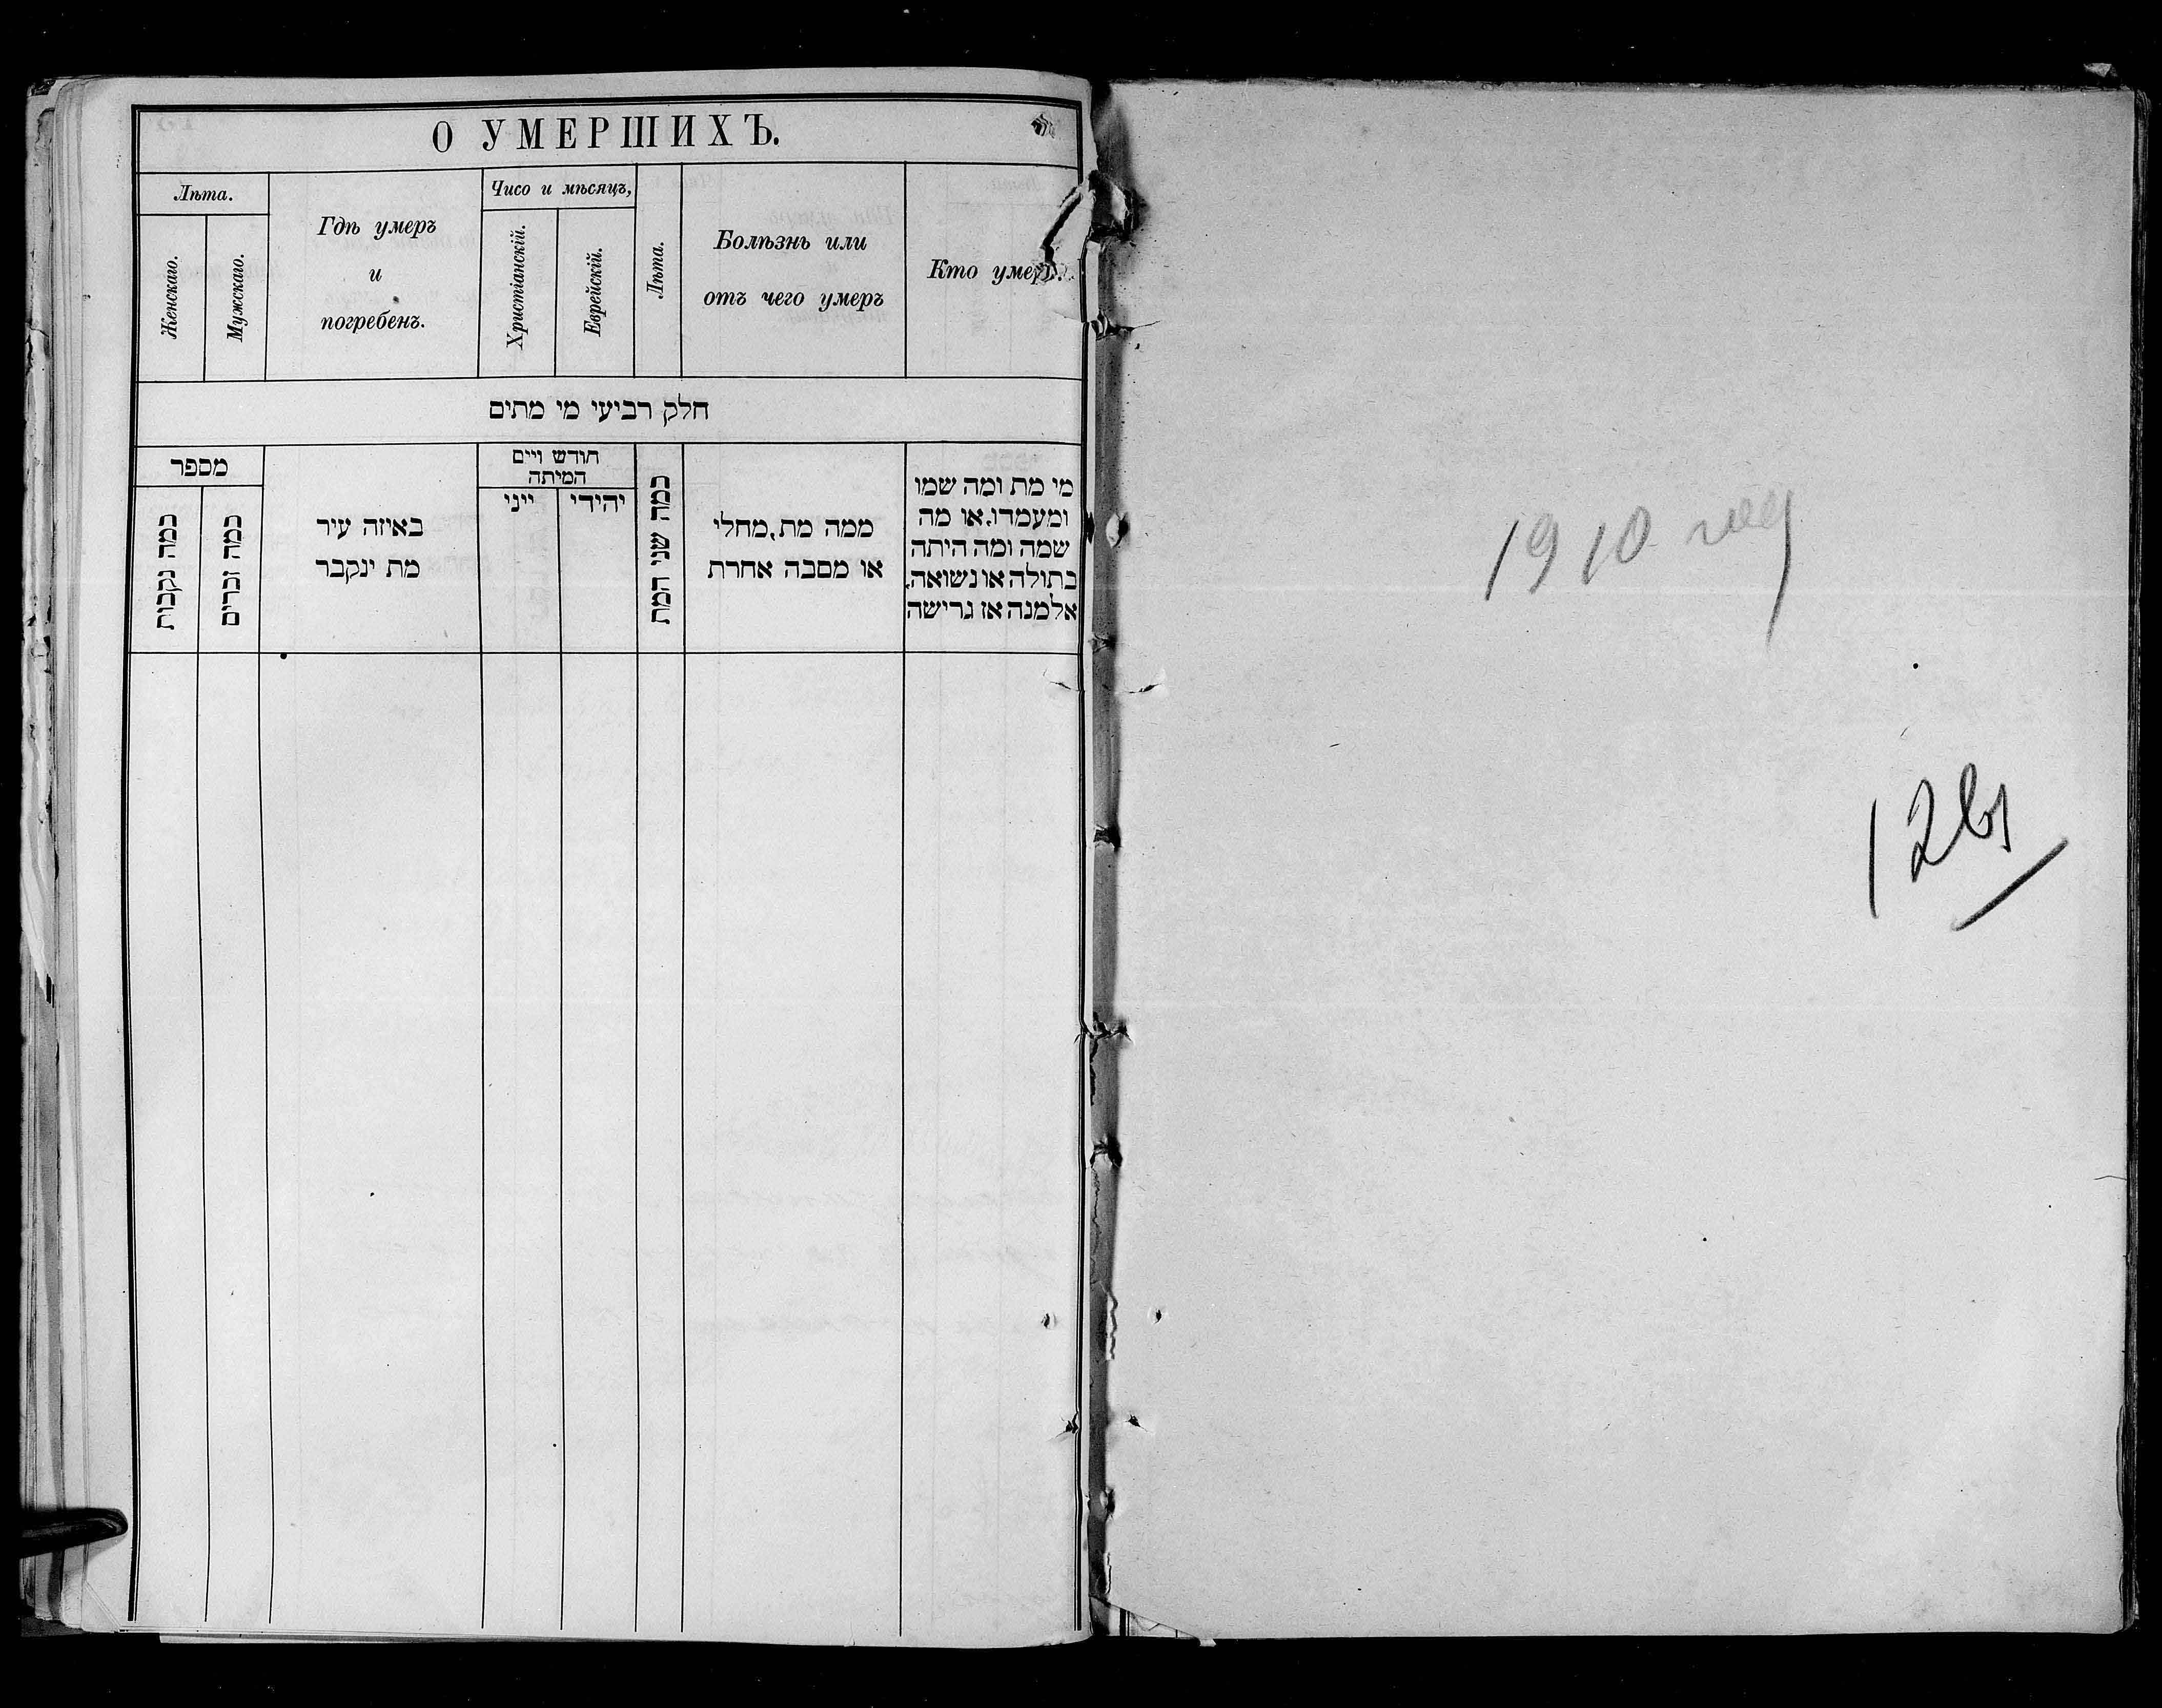 О УМЕРШИХЪ.
Лѣта.
Женскаго.
Мужскаго.
Гдѣ умеръ
и
погребенъ.
Чисо и мѣсяцъ,
Христіанскій.
Еврейскій.
Лѣта.
Болѣзнь или
отъ чего умеръ
Кто умеръ.
חלק רביעי מי מתים
מספר
כמה נקבות
כמה זכרים
באיזה עיר
מת ינקבר
חודש ויים
המיתה
ייני
יהידי
כמה שני המת
ממה מת, מחלי
או מסבה אחרת
מי מת ומה שמו
ומעמדו, או מה
שמה ומה היתה
בתולה או נשואה,
אלמנה אז גרישה
1910 год
126